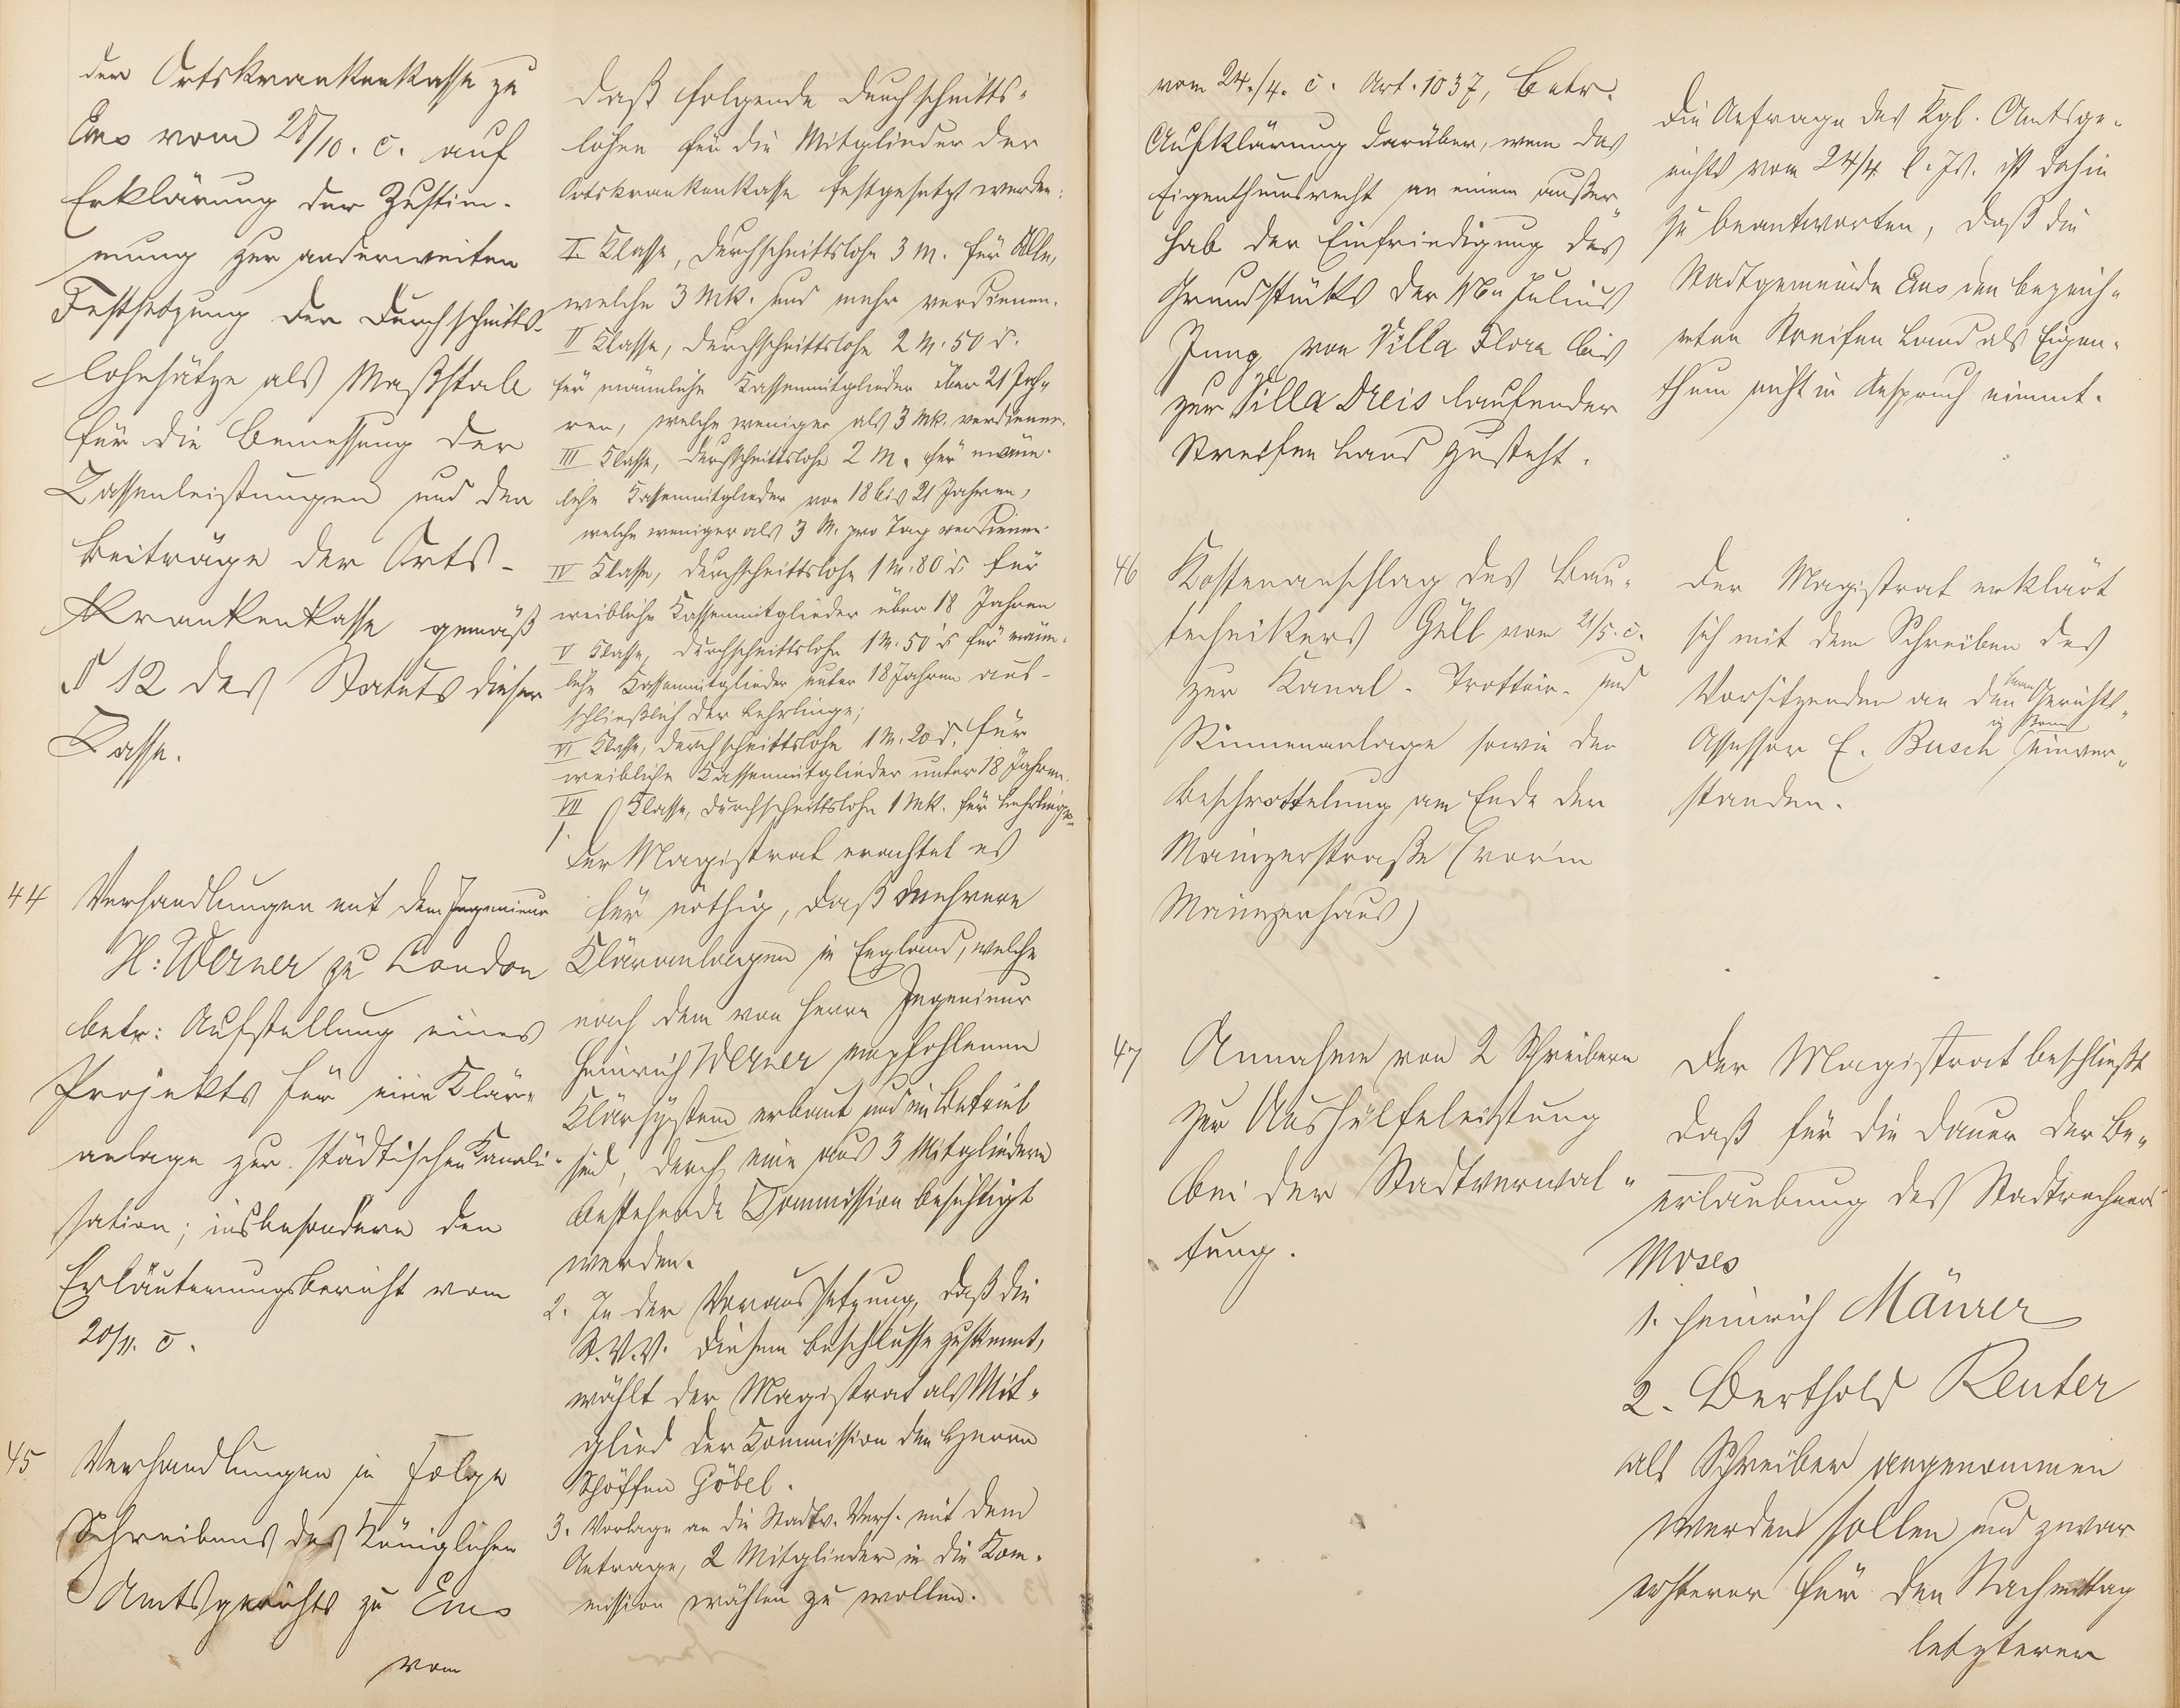 der Ortskrankenkasse zu
Ems vom 28/10. c. auf
Erklärung der Zustim-
mung zur anderweiten
Festsetzung der Durchschnitts-
lohnsätze als Maßstab
für die Bemessung der
Kassenleistungen und der
Beiträge der Orts-
krankenkasse gemäß
§ 12 des Statuts dieser
Kasse.
daß folgende Durchschnitts-
löhne für die Mitglieder der
Ortskrankenkasse festgesetzt werden:
I Klasse, Durchschnittslohn 3 M. für Alle,
welche 3 Mk. und mehr verdienen.
II Klasse, Durchschnittslohn 2 M. 50 d.
für männliche Kassenmitglieder über 21 Jah-
ren, welche weniger als 3 Mk. verdienen.
III Klasse, Durchschnittslohn 2 M. für männ-
liche Kassenmitglieder von 18 bis 21 Jahren,
welche weniger als 3 M. pro Tag verdienen.
IV Klasse, Durchschnittslohn 1 M. 80 d. für
weibliche Kassenmitglieder über 18 Jahren
V Klasse, Durchschnittslohn 1 M. 50 d für männ-
liche Kassenmitglieder unter 18 Jahren aus-
schließlich der Lehrlinge;
VI Klasse, Durchschnittslohn 1 M. 20 d. für
weibliche Kassenmitglieder unter 18 Jahren.
VII Klasse, Durchschnittslohn 1 Mk. für Lehrlinge.
44 Verhandlungen mit dem Ingenieur
H: Werner zu London
betr: Aufstellung eines
Projekts für eine Klär-
anlage zur städtischen Kanali-
sation; insbesondere den
Erläuterungsbericht vom
20/11. c.
1. Der Magistrat erachtet es
für nöthig, daß mehrere
Kläranlagen in England, welche
nach dem von Herrn Ingenieur
Heinrich Werner empfohlenen
Klärsystem erbaut und im Betrieb
sind, durch eine aus 3 Mitgliedern
bestehende Kommission besichtigt
werden.
2. In der Voraussetzung, daß die
St. V. V. diesem Beschlusse zustimmt,
wählt der Magistrat als Mit-
glied der Kommission den Herrn
Schöffen Göbel.
3. Vorlage an die Stadtv. Vers. mit dem
Antrage, 2 Mitglieder in die Kom-
mission wählen zu wollen.
45 Verhandlungen in Folge
Schreibens des Königlichen
Amtsgerichts zu Ems
vom
vom 24./4. c. Art. 1037, betr.
Aufklärung darüber, wem das
Eigenthumsrecht an einem außer-
halb der Einfriedigung des
Grundstücks der Julius
Jung von Villa Flora bis
zur Villa Dreis laufender
Streifen Land zusteht.
Die Anfrage des Kgl. Amtsge-
richts vom 24/4 l. Js. ist dahin
zu beantworten, daß die
Stadtgemeinde Ems den bezeich-
neten Streifen Land als Eigen-
thum nicht in Anspruch nimmt.
46 Kostenanschlag des Bau-
technikers Güll vom 21/5. c.
zur Kanal- Trottoir- und
Rinnenanlage sowie der
Beschrottelung am Ende der
Mainzerstraße (vor'm
Mainzerhaus)
Der Magistrat erklärt
sich mit dem Schreiben des
Vorsitzenden an den Herrn Gerichts-
Assessor E. Busch einver-
standen.
47 Annahme von 2 Schreibern
zur Aushülfeleistung
bei der Stadtverwal-
tung.
Der Magistrat beschließt
daß für die Dauer der Be-
urlaubung des Stadtrechners
Moses
1. Heinrich Mäurer
2. Berthold Reuter
als Schreiber angenommen
werden sollen und zwar
ersterer für den Nachmittag
letzterer